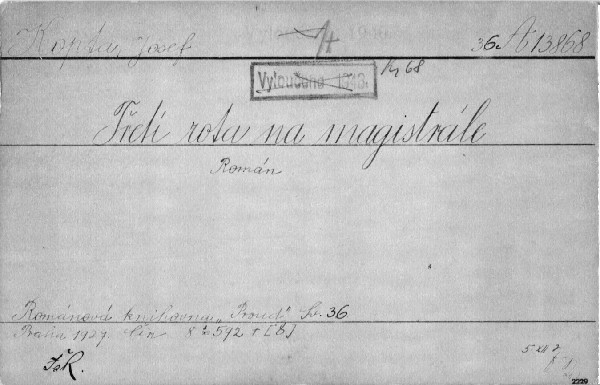 Kopta, Josef 36. A 13868
Vyloučeno 1948.
Třetí rota na magistrále
Román
Románová knihovna „Proud" Sv. 36
Praha 1927. Čin 8° 592 + [6]
2229